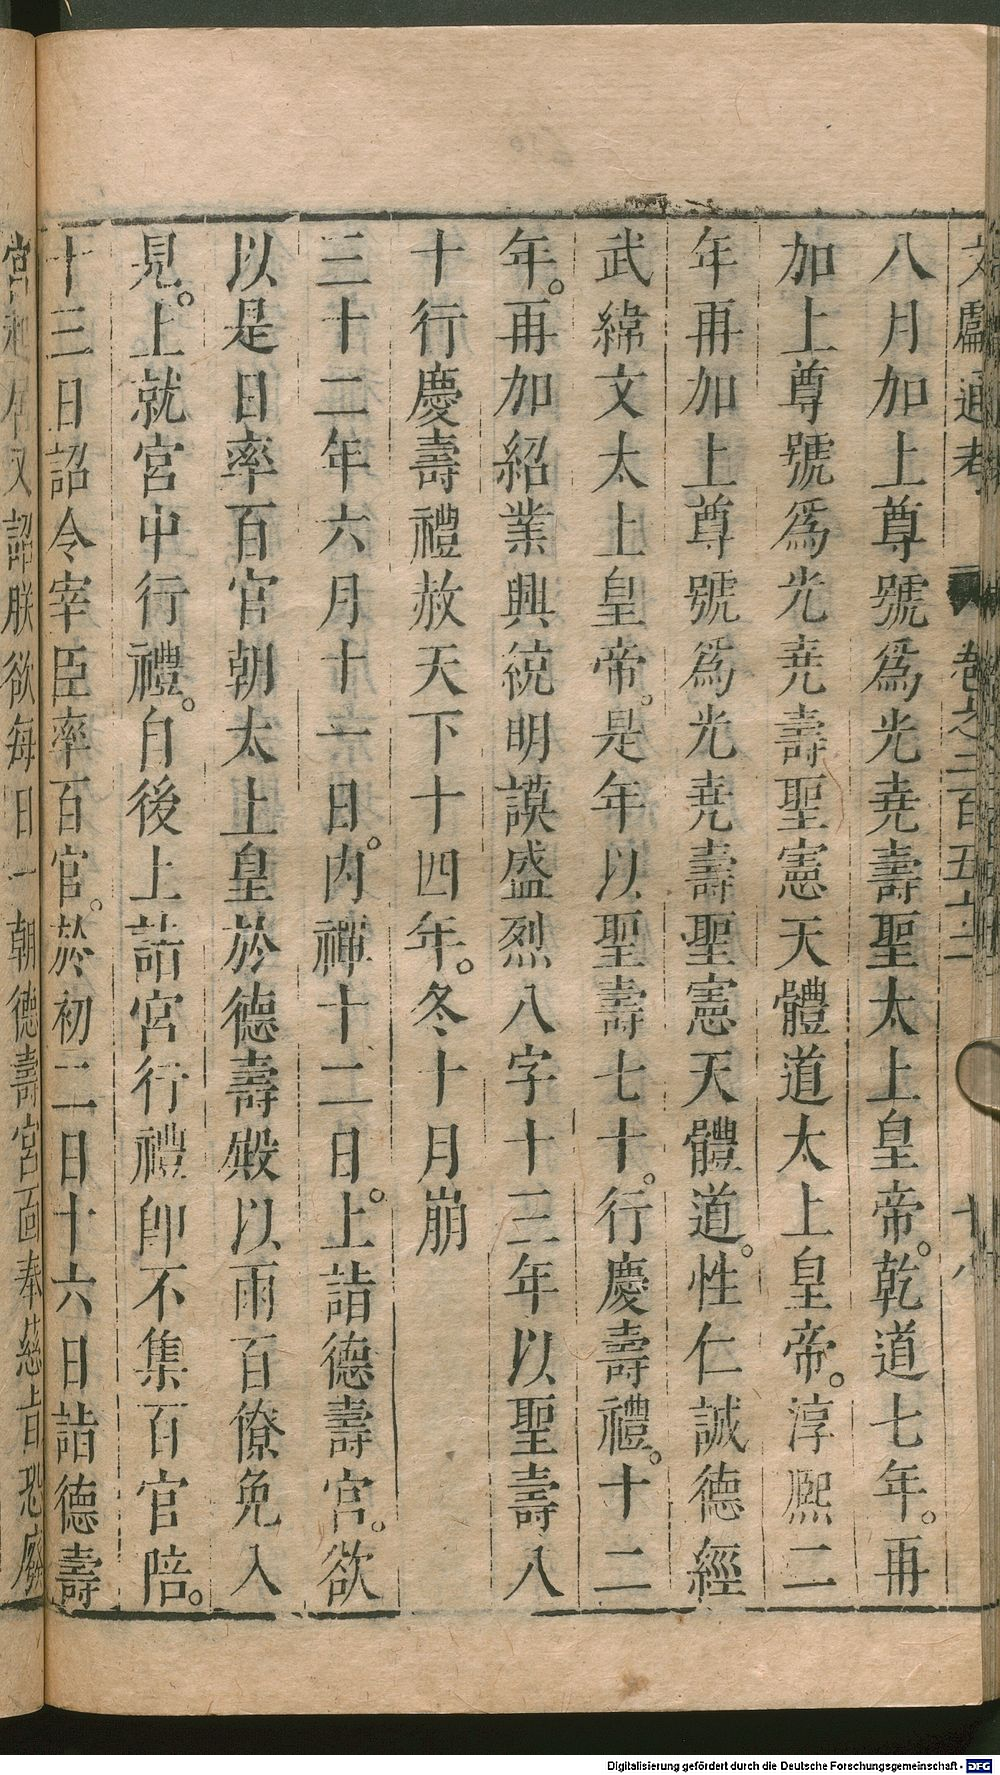 文獻通考 卷之二百五十二 十八
八月加上尊號爲光堯壽聖太上皇帝。乾道七年。再
加上尊號爲光堯壽聖憲天體道太上皇帝。淳熙二
年再加上尊號爲光堯壽聖憲天體道。性仁誠德經
武緯文太上皇帝。是年以聖壽七十。行慶壽禮。十二
年。再加紹業興統明謨盛烈八字十三年以聖壽八
十行慶壽禮赦天下十四年。冬十月崩
三十二年六月十一日。內禪十二日。上詣德壽宮。欲
以是日率百官朝太上皇於德壽殿以雨百僚免入
見。上就宮中行禮。自後上詣宮行禮卽不集百官陪。
十三日詔令宰臣率百官。於初二日十六日詣德壽
宮起居又詔朕欲每日一朝德壽宮面奉慈旨恐廢
Digitalisierung gefördert durch die Deutsche Forschungsgemeinschaft - DFG